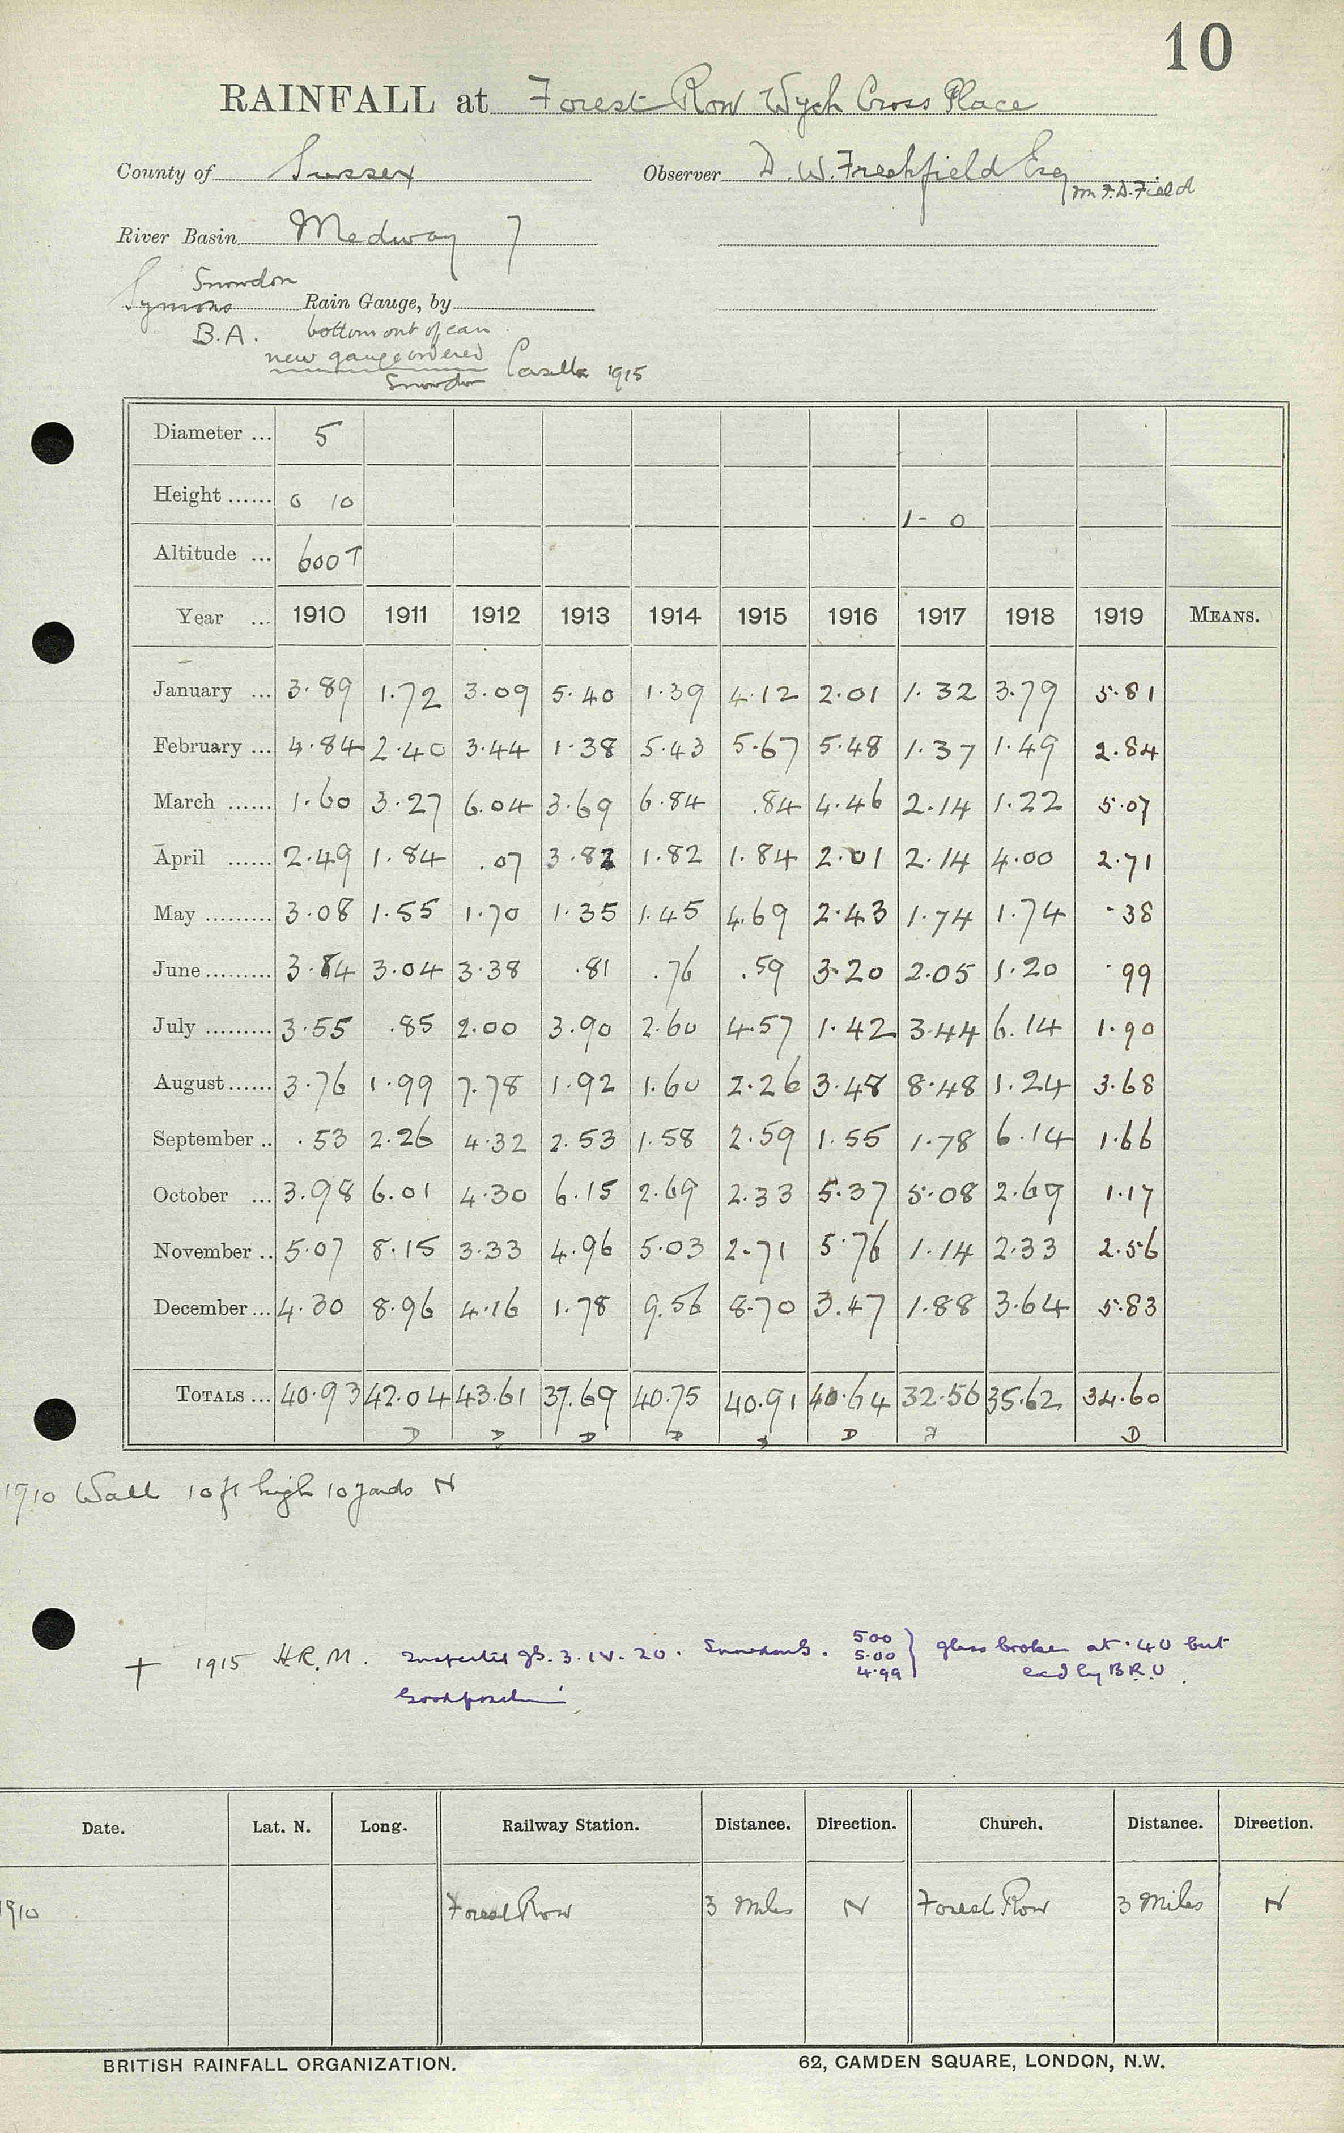 10
RAINFALL at Forest Row Wych Cross Place
County of Sussex Observer D. W. Freshfield Esq
Mr F. D. Field
River Basin Medway 7
Snowdon
Symons Rain Gauge, by
B.A. bottom out of can
new gauge ordered
Snowdon Casella 1915
Diameter ... 5
Height ...... 0 10 1-0
Altitude ... 600 T
Year ... 1910 1911 1912 1913 1914 1915 1916 1917 1918 1919 MEANS.
January ... 3.89 1.72 3.09 5.40 1.39 4.12 2.01 1.32 3.79 5.81
February ... 4.84 2.40 3.44 1.38 5.43 5.67 5.48 1.37 1.49 2.84
March ...... 1.60 3.27 6.04 3.69 6.84 .84 4.46 2.14 1.22 5.07
April ...... 2.49 1.84 .07 3.82 1.82 1.84 2.01 2.14 4.00 2.71
May ......... 3.08 1.55 1.70 1.35 1.45 4.69 2.43 1.74 1.74 .38
June ......... 3.84 3.04 3.38 .81 .76 .59 3.20 2.05 1.20 .99
July ......... 3.55 .85 2.00 3.90 2.60 4.57 1.42 3.44 6.14 1.90
August ...... 3.76 1.99 7.78 1.92 1.60 2.26 3.48 8.48 1.24 3.68
September .. .53 2.26 4.32 2.53 1.58 2.59 1.55 1.78 6.14 1.66
October ... 3.98 6.01 4.30 6.15 2.69 2.33 5.37 5.08 2.69 1.17
November .. 5.07 8.15 3.33 4.96 5.03 2.71 5.76 1.14 2.33 2.56
December ... 4.30 8.96 4.16 1.78 9.56 8.70 3.47 1.88 3.64 5.83
TOTALS ... 40.93 42.04 43.61 37.69 40.75 40.91 40.64 32.56 35.62 34.60
D D D D D D
1910 Wall 10 ft high 10 yards N
+ 1915 H.R.M. Inspected 3.IV.20. Snowdon G. 500 } glass broken at .40 but
5.00
4.99
by B.R.O.
Good position
Date. Lat. N. Long. Railway Station. Distance. Direction. Church. Distance. Direction.
1910 Forest Row 3 Miles N Forest Row 3 Miles N
BRITISH RAINFALL ORGANIZATION. 62, CAMDEN SQUARE, LONDON, N.W.